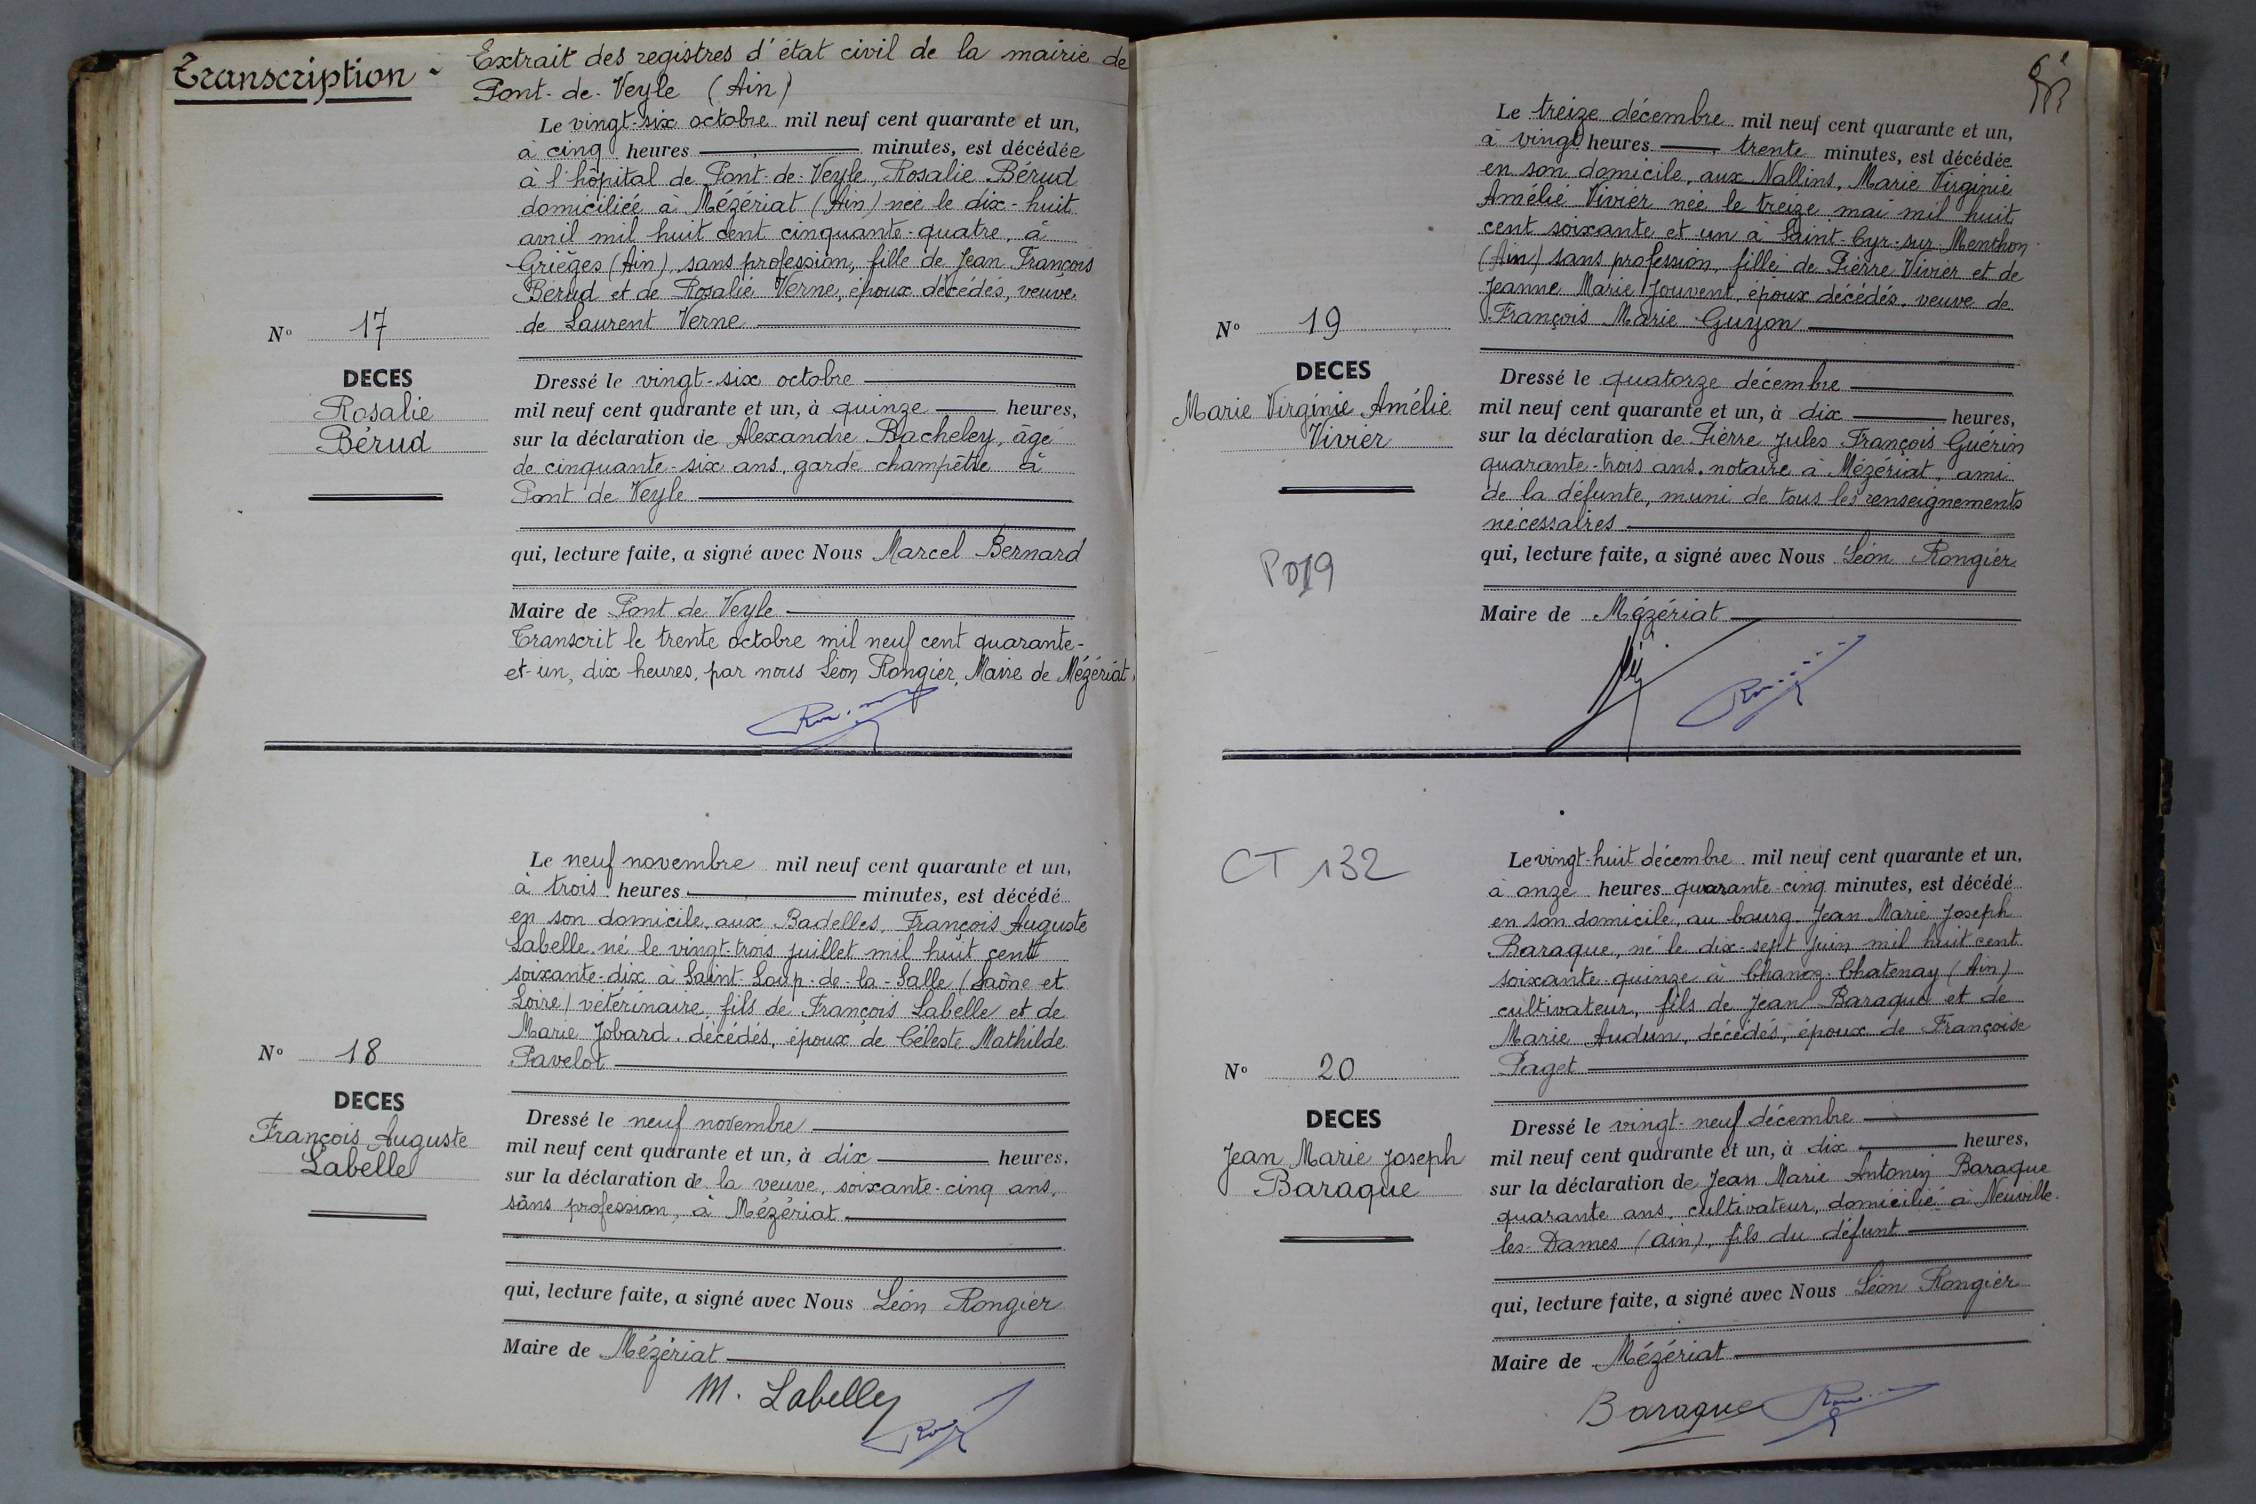 Transcription -
Extrait des registres d'état civil de la mairie de
Pont-de-Veyle (Ain)
Le vingt-six octobre mil neuf cent quarante et un,
à cinq heures — minutes, est décédée
à l'hôpital de Pont-de-Veyle, Rosalie Bérud
domiciliée à Mézériat (Ain) née le dix-huit
avril mil huit cent cinquante-quatre, à
Grièges (Ain), sans profession, fille de Jean François
Bérud et de Rosalie Verne, époux décédés, veuve
de Laurent Verne
N° 17
DECES
Rosalie
Bérud
Dressé le vingt-six octobre
mil neuf cent quarante et un, à quinze heures,
sur la déclaration de Alexandre Bacheley, âgé
de cinquante-six ans, garde champêtre à
Pont de Veyle
qui, lecture faite, a signé avec Nous Marcel Bernard
Maire de Pont de Veyle
Transcrit le trente octobre mil neuf cent quarante-
et-un, dix heures, par nous Léon Rongier, Maire de Mézériat.
Le neuf novembre mil neuf cent quarante et un,
à trois heures — minutes, est décédé
en son domicile, aux Badelles, François Auguste
Labelle, né le vingt-trois juillet mil huit cent
soixante-dix à Saint-Loup-de-la-Salle (Saône et
Loire) vétérinaire, fils de François Labelle et de
Marie Jobard, décédés, époux de Céleste Mathilde
Pavelot
N° 18
DECES
François Auguste
Labelle
Dressé le neuf novembre
mil neuf cent quarante et un, à dix heures,
sur la déclaration de la veuve, soixante-cinq ans,
sans profession, à Mézériat
qui, lecture faite, a signé avec Nous Léon Rongier
Maire de Mézériat
M. Labelle
Le treize décembre mil neuf cent quarante et un,
à vingt heures — trente minutes, est décédée
en son domicile, aux Nallins, Marie Virginie
Amélie Vivier née le treize mai mil huit
cent soixante et un à Saint-Cyr-sur-Menthon
(Ain) sans profession, fille de Pierre Vivier et de
Jeanne Marie Jouvent, époux décédés, veuve de
François Marie Guyon
N° 19
DECES
Marie Virginie Amélie
Vivier
P019
Dressé le quatorze décembre
mil neuf cent quarante et un, à dix heures,
sur la déclaration de Pierre Jules François Guérin
quarante-trois ans, notaire à Mézériat, ami
de la défunte, muni de tous les renseignements
nécessaires
qui, lecture faite, a signé avec Nous Léon Rongier
Maire de Mézériat
CT 132
Le vingt-huit décembre mil neuf cent quarante et un,
à onze heures quarante-cinq minutes, est décédé
en son domicile, au bourg, Jean Marie Joseph
Baraque, né le dix-sept juin mil huit cent
soixante-quinze à Chanoz-Chatenay (Ain)
cultivateur, fils de Jean Baraque et de
Marie Audun, décédés, époux de Françoise
Paget
N° 20
DECES
Jean Marie Joseph
Baraque
Dressé le vingt-neuf décembre
mil neuf cent quarante et un, à dix heures,
sur la déclaration de Jean Marie Antonin Baraque
quarante ans, cultivateur, domicilié à Neuville-
les-Dames (Ain), fils du défunt
qui, lecture faite, a signé avec Nous Léon Rongier
Maire de Mézériat
Baraque